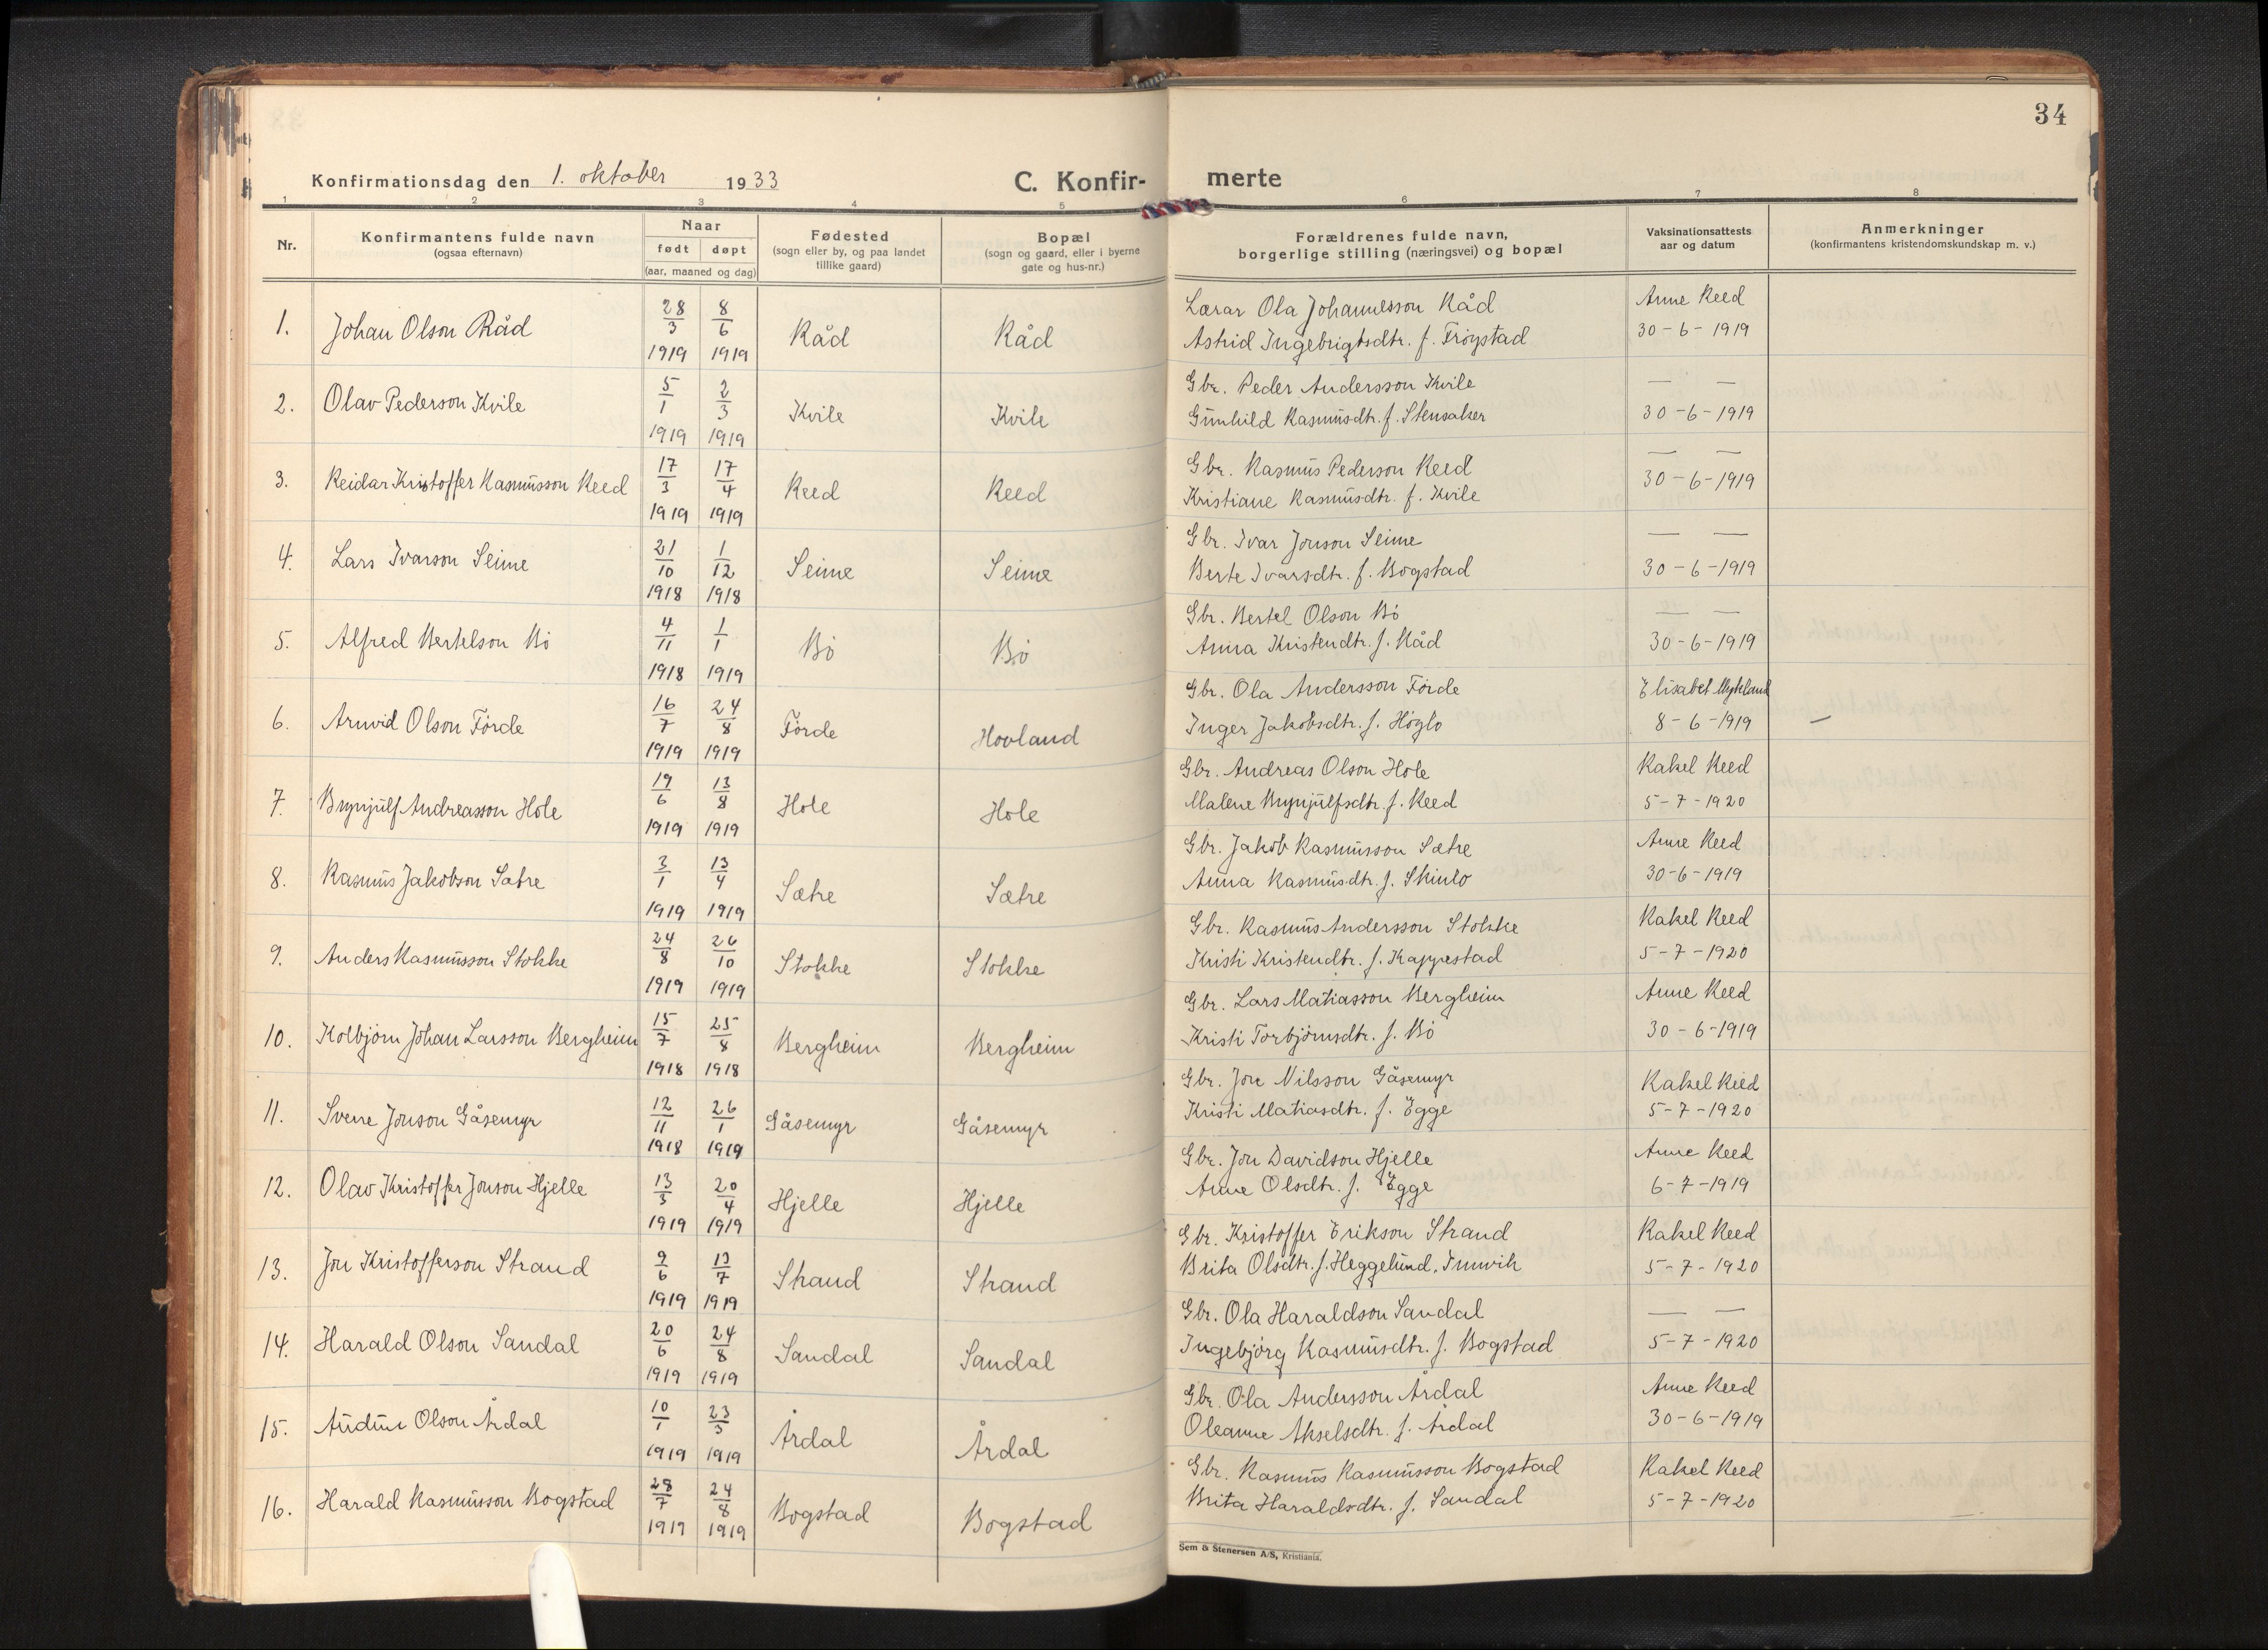 34
Konfirmationsdag den 1. oktober 1933
C. Konfir-
merte
1 2 3 4 5 6 7 8
Nr.
Konfirmantens fulde navn
(ogsaa efternavn)
Naar
født døpt
(aar, maaned og dag)
Fødested
(sogn eller by, og paa landet
tillike gaard)
Bopæl
(sogn og gaard, eller i byerne
gate og hus-nr.)
Forældrenes fulde navn,
borgerlige stilling (næringsvei) og bopæl
Vaksinationsattests
aar og datum
Anmerkninger
(konfirmantens kristendomskundskap m. v.)
1. Johan Olson Råd 28/3 1919 8/6 1919 Råd Råd
Lærar Ola Johannesson Råd Anne Reed
Astrid Ingebrigtsdtr. f. Fröystad 30-6-1919
2. Olav Pederson Kvile 5/1 1919 2/3 1919 Kvile Kvile
Gbr. Peder Andersson Kvile — —
Gunhild Rasmusdtr. f. Stensaker 30-6-1919
3. Reidar Kristoffer Rasmusson Reed 17/3 1919 17/4 1919 Reed Reed
Gbr. Rasmus Pederson Reed — —
Kristiane Rasmusdtr. f. Kvile 30-6-1919
4. Lars Ivarson Seime 21/10 1918 1/12 1918 Seime Seime
Gbr. Ivar Jonson Seime — —
Berte Ivarsdtr. f. Bogstad 30-6-1919
5. Alfred Bertelson Bö 4/11 1918 1/1 1919 Bö Bö
Gbr. Bertel Olson Bö — —
Anna Kristendtr. f. Råd 30-6-1919
6. Arnvid Olson Förde 16/7 1919 24/8 1919 Förde Hovland
Gbr. Ola Andersson Förde Elisabet Mykland
Inger Jakobsdtr. f. Höglo 8-6-1919 —
7. Brynjulf Andreasson Hole 19/6 1919 13/8 1919 Hole Hole
Gbr. Andreas Olson Hole Rakel Reed
Malene Brynjulfsdtr. f. Reed 5-7-1920
8. Rasmus Jakobson Sætre 3/1 1919 13/4 1919 Sætre Sætre
Gbr. Jakob Rasmusson Sætre Anne Reed
Anna Rasmusdtr. f. Skinlo 30-6-1919
9. Anders Rasmusson Stokke 24/8 1919 26/10 1919 Stokke Stokke
Gbr. Rasmus Andersson Stokke Rakel Reed
Kristi Kristendtr. f. Kappestad 5-7-1920
10. Kolbjörn Johan Larsson Bergheim 15/7 1918 25/8 1918 Bergheim Bergheim
Gbr. Lars Matiasson Bergheim Anne Reed
Kristi Torbjörnsdtr. f. Bö 30-6-1919
11. Sverre Jonson Gåsemyr 12/11 1918 26/1 1919 Gåsemyr Gåsemyr
Gbr. Jon Nilsson Gåsemyr Rakel Reed
Kristi Matiasdtr. f. Egge 5-7-1920
12. Olav Kristoffer Jonson Hjelle 13/3 1919 20/4 1919 Hjelle Hjelle
Gbr. Jon Davidson Hjelle Anne Reed
Anne Olsdtr. f. Egge 6-7-1919
13. Jon Kristofferson Strand 9/6 1919 13/7 1919 Strand Strand
Gbr. Kristoffer Erikson Strand Rakel Reed
Brita Olsdtr. f. Heggelund, Innvik 5-7-1920
14. Harald Olson Sandal 20/6 1919 24/8 1919 Sandal Sandal
Gbr. Ola Haraldson Sandal — —
Ingebjörg Rasmusdtr. f. Bogstad 5-7-1920
15. Audun Olson Årdal 10/1 1919 23/3 1919 Årdal Årdal
Gbr. Ola Andersson Årdal Anne Reed
Oleanne Akselsdtr. f. Årdal 30-6-1919
16. Harald Rasmusson Bogstad 28/7 1919 24/8 1919 Bogstad Bogstad
Gbr. Rasmus Rasmusson Bogstad Rakel Reed
Brita Haraldsdtr. f. Sandal 5-7-1920
Sem & Stenersen A/S, Kristiania.